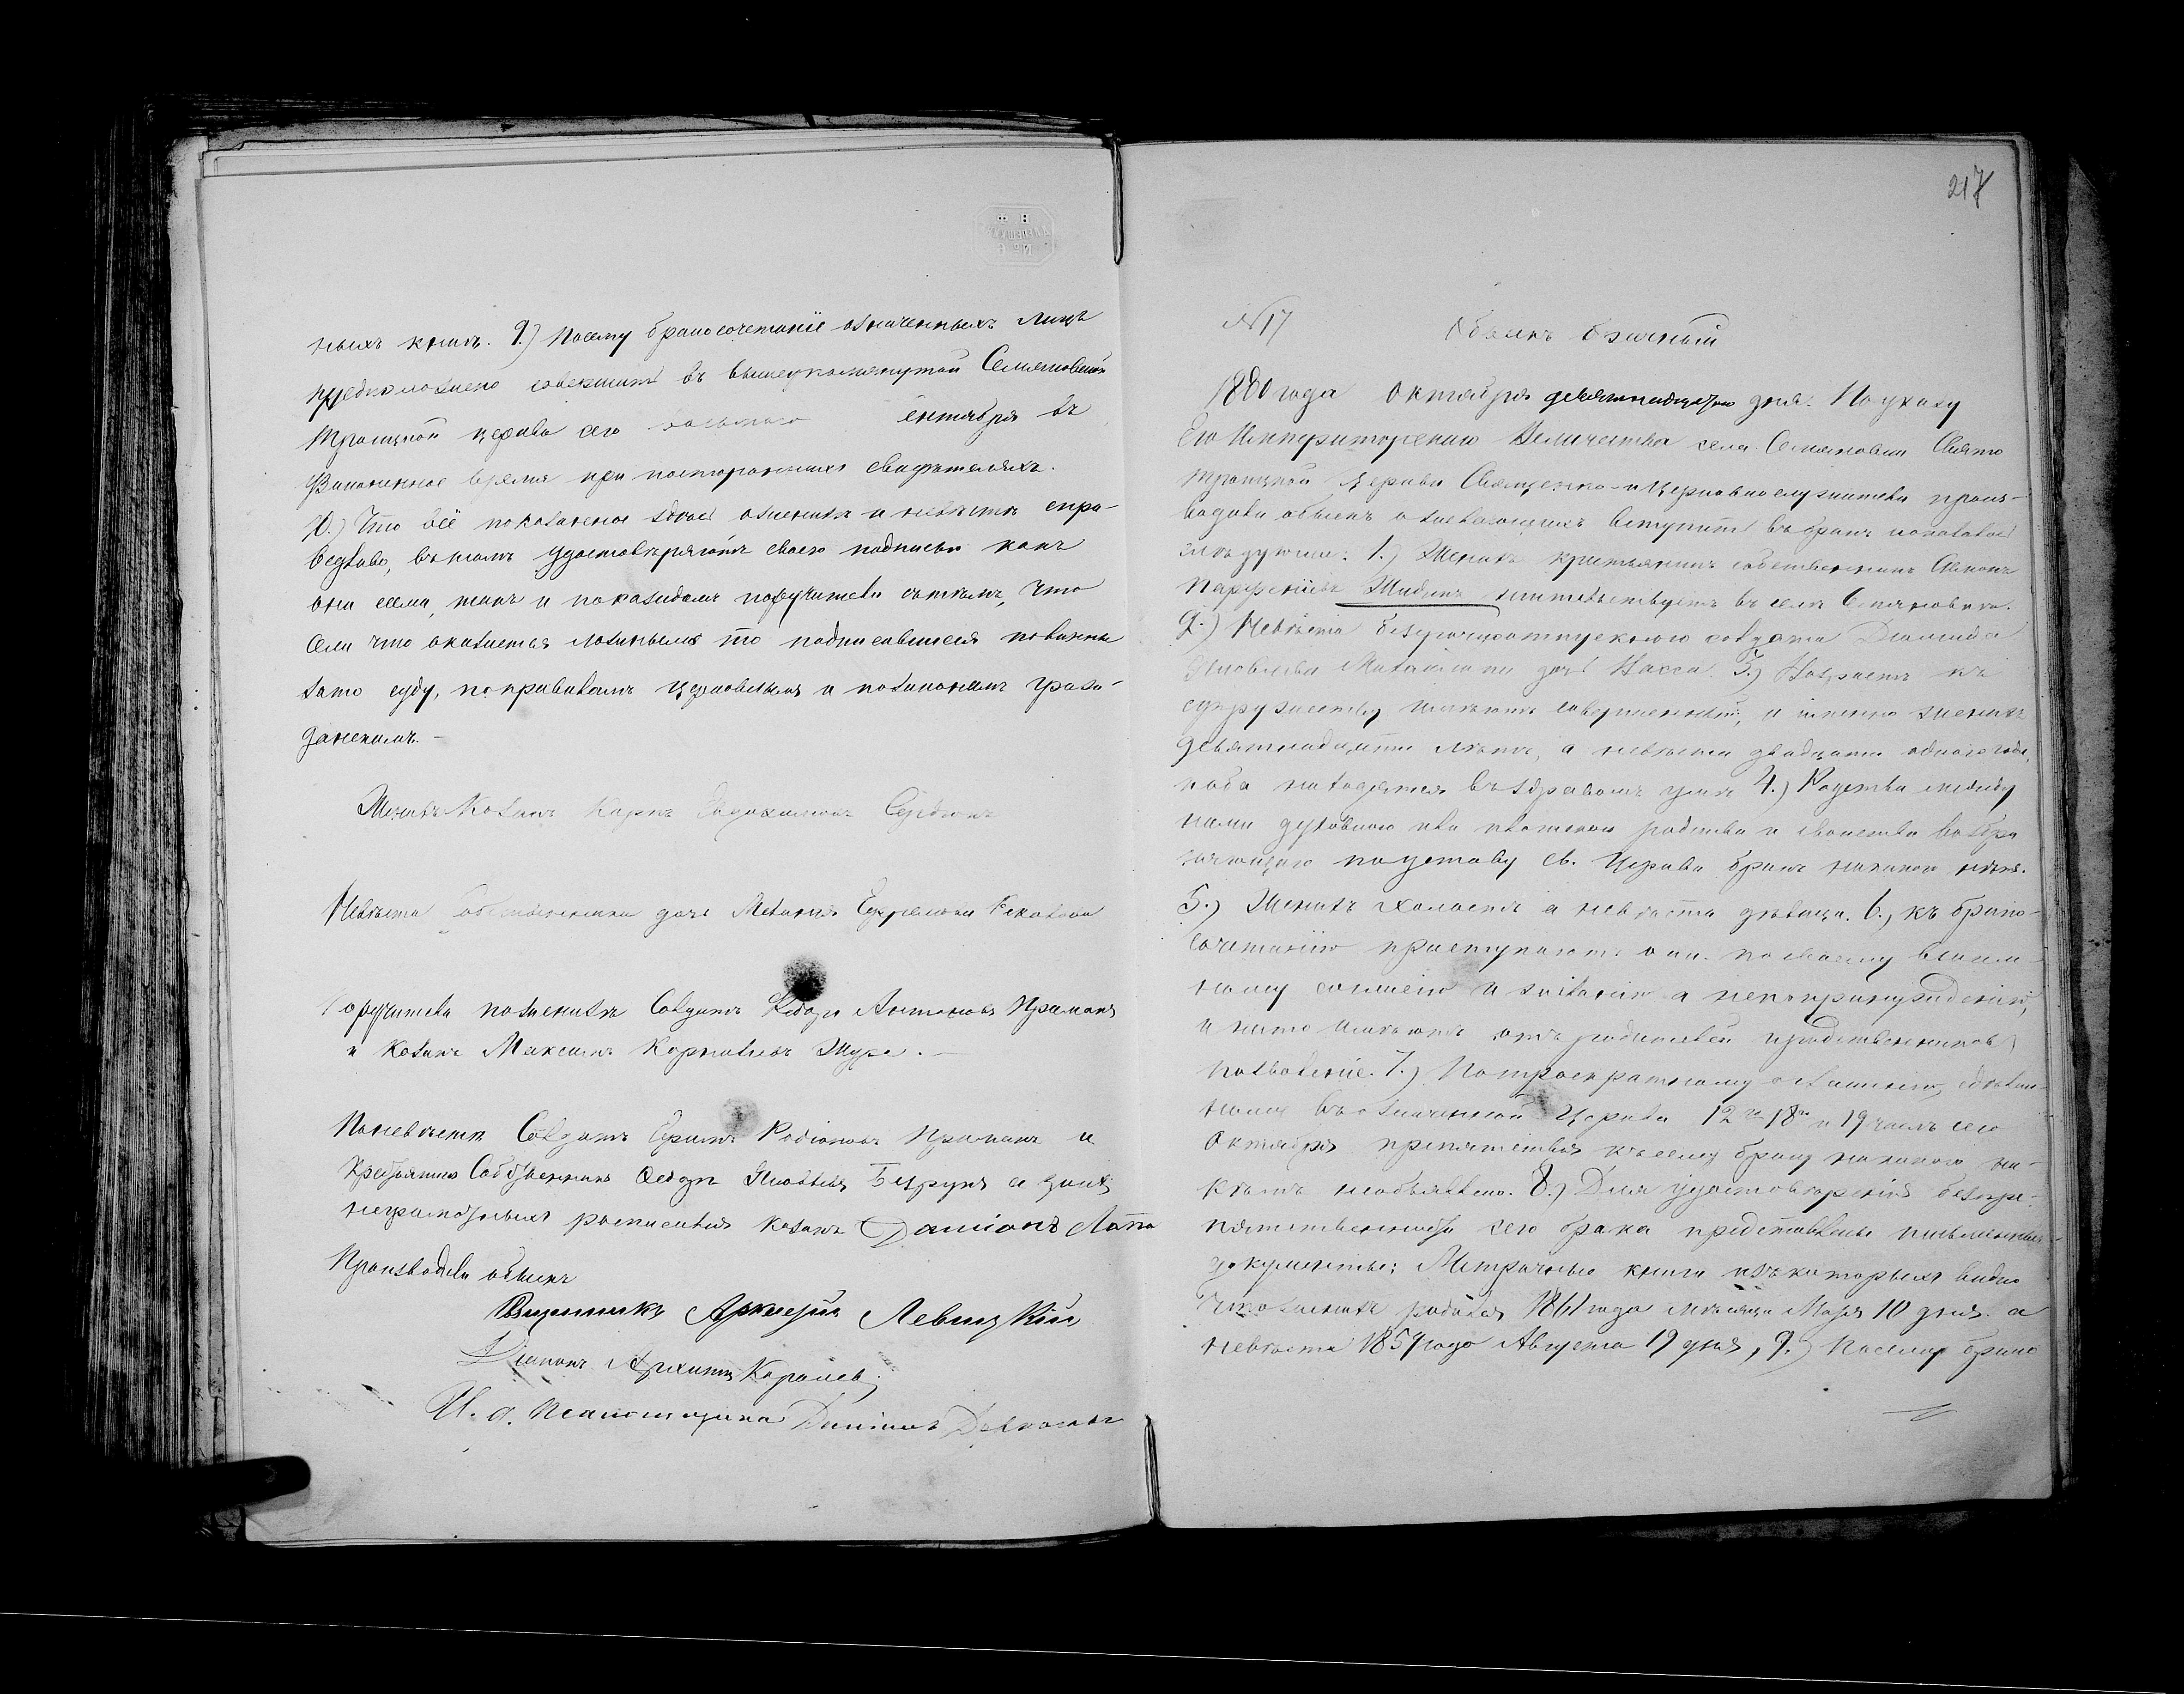 ныхъ книгъ. 9.) Посему бракосочетаніе означенныхъ лицъ
предположено совершить въ вышеупомянутой Семяновской
Троицкой церкви сего восьмого ентября въ
Законенное время при постороннихъ свидѣтеляхъ.
10.) Что всё показанное здѣсь о женихѣ и невѣстѣ спра-
ведливо, въ томъ удостовѣряютъ своею подписью какъ
они сами, такъ и по каждомъ поручители съ тѣмъ, что
если что окажется ложнымъ то подписавшіеся повинны
зато суду, по правиламъ церковнымъ и по законамъ граж-
данскимъ. -
Женихъ Козакъ Карпъ Евдокимовъ Сердюкъ
Невѣста дочь Меланія Ефремова
Поручители по женихѣ Солдатъ Федоръ Антоновъ Приманъ
и Козакъ Максимъ Корнилiевъ Жура. -
По невѣстѣ Солдатъ Ефимъ Родіоновъ Приманъ и
Крестьянинъ Собственникъ Федоръ Яковлевъ а за нихъ
неграмотныхъ росписался козакъ Даміанъ Лопа
Производили обыскъ
Священникъ Аркадій Левицкій
Діаконъ Архипъ Королев
И. д. Псаломщика Даніилъ
217
№ 17 Обыскъ брачный
1880 года Октября девятнадцатого дня. По указу
Его Императорскаго Величества села Семяновки Свято
Троицкой Церкви Священно-и Церковнослужители произ-
водили обыскъ о желающихъ вступить въ бракъ и оказалось
слѣдующее: 1.) Женихъ крестьянинъ собственникъ
Парфеніевъ Жидикъ жительствуетъ въ селѣ Семяновки.
2.) Невѣста безсрочноотпускного солдата Діомида
Яковлева дочь Васса. 3.) Возрастъ къ
супружеству имѣютъ совершенный, и именно женихъ
девятнадцати лѣтъ, а невѣста двадцати одного года,
и оба находятся въ здравомъ умѣ 4.) Родства между
ними духовного или плотского родства и свойства возбра
няющаго по уставу св. Церкви бракъ никакого нѣтъ.
5.) Женихъ холостъ а невѣста дѣвица. 6.) къ брако-
сочетанію приступаютъ они по своему взаим-
ному согласію и желанію а не по принужденію,
и на то имѣютъ отъ родителей и родственниковъ
позволеніе. 7.) По троекратному оглашенію, сдѣлан-
ному въ означенной Церкви 12го 18го и 19 чиселъ сего
Октября препятствія къ сему браку никакого ни-
кѣмъ необъявлено. 8.) Для удостовѣренія безпре-
пятственности сего брака представлены письменные
документы: Метричные книги изъ которыхъ видно
что женихъ родился 1861 года мѣсяца Марта 10 дня. а
невѣста 1859 года Августа 19 дня, 9.) Посему брако